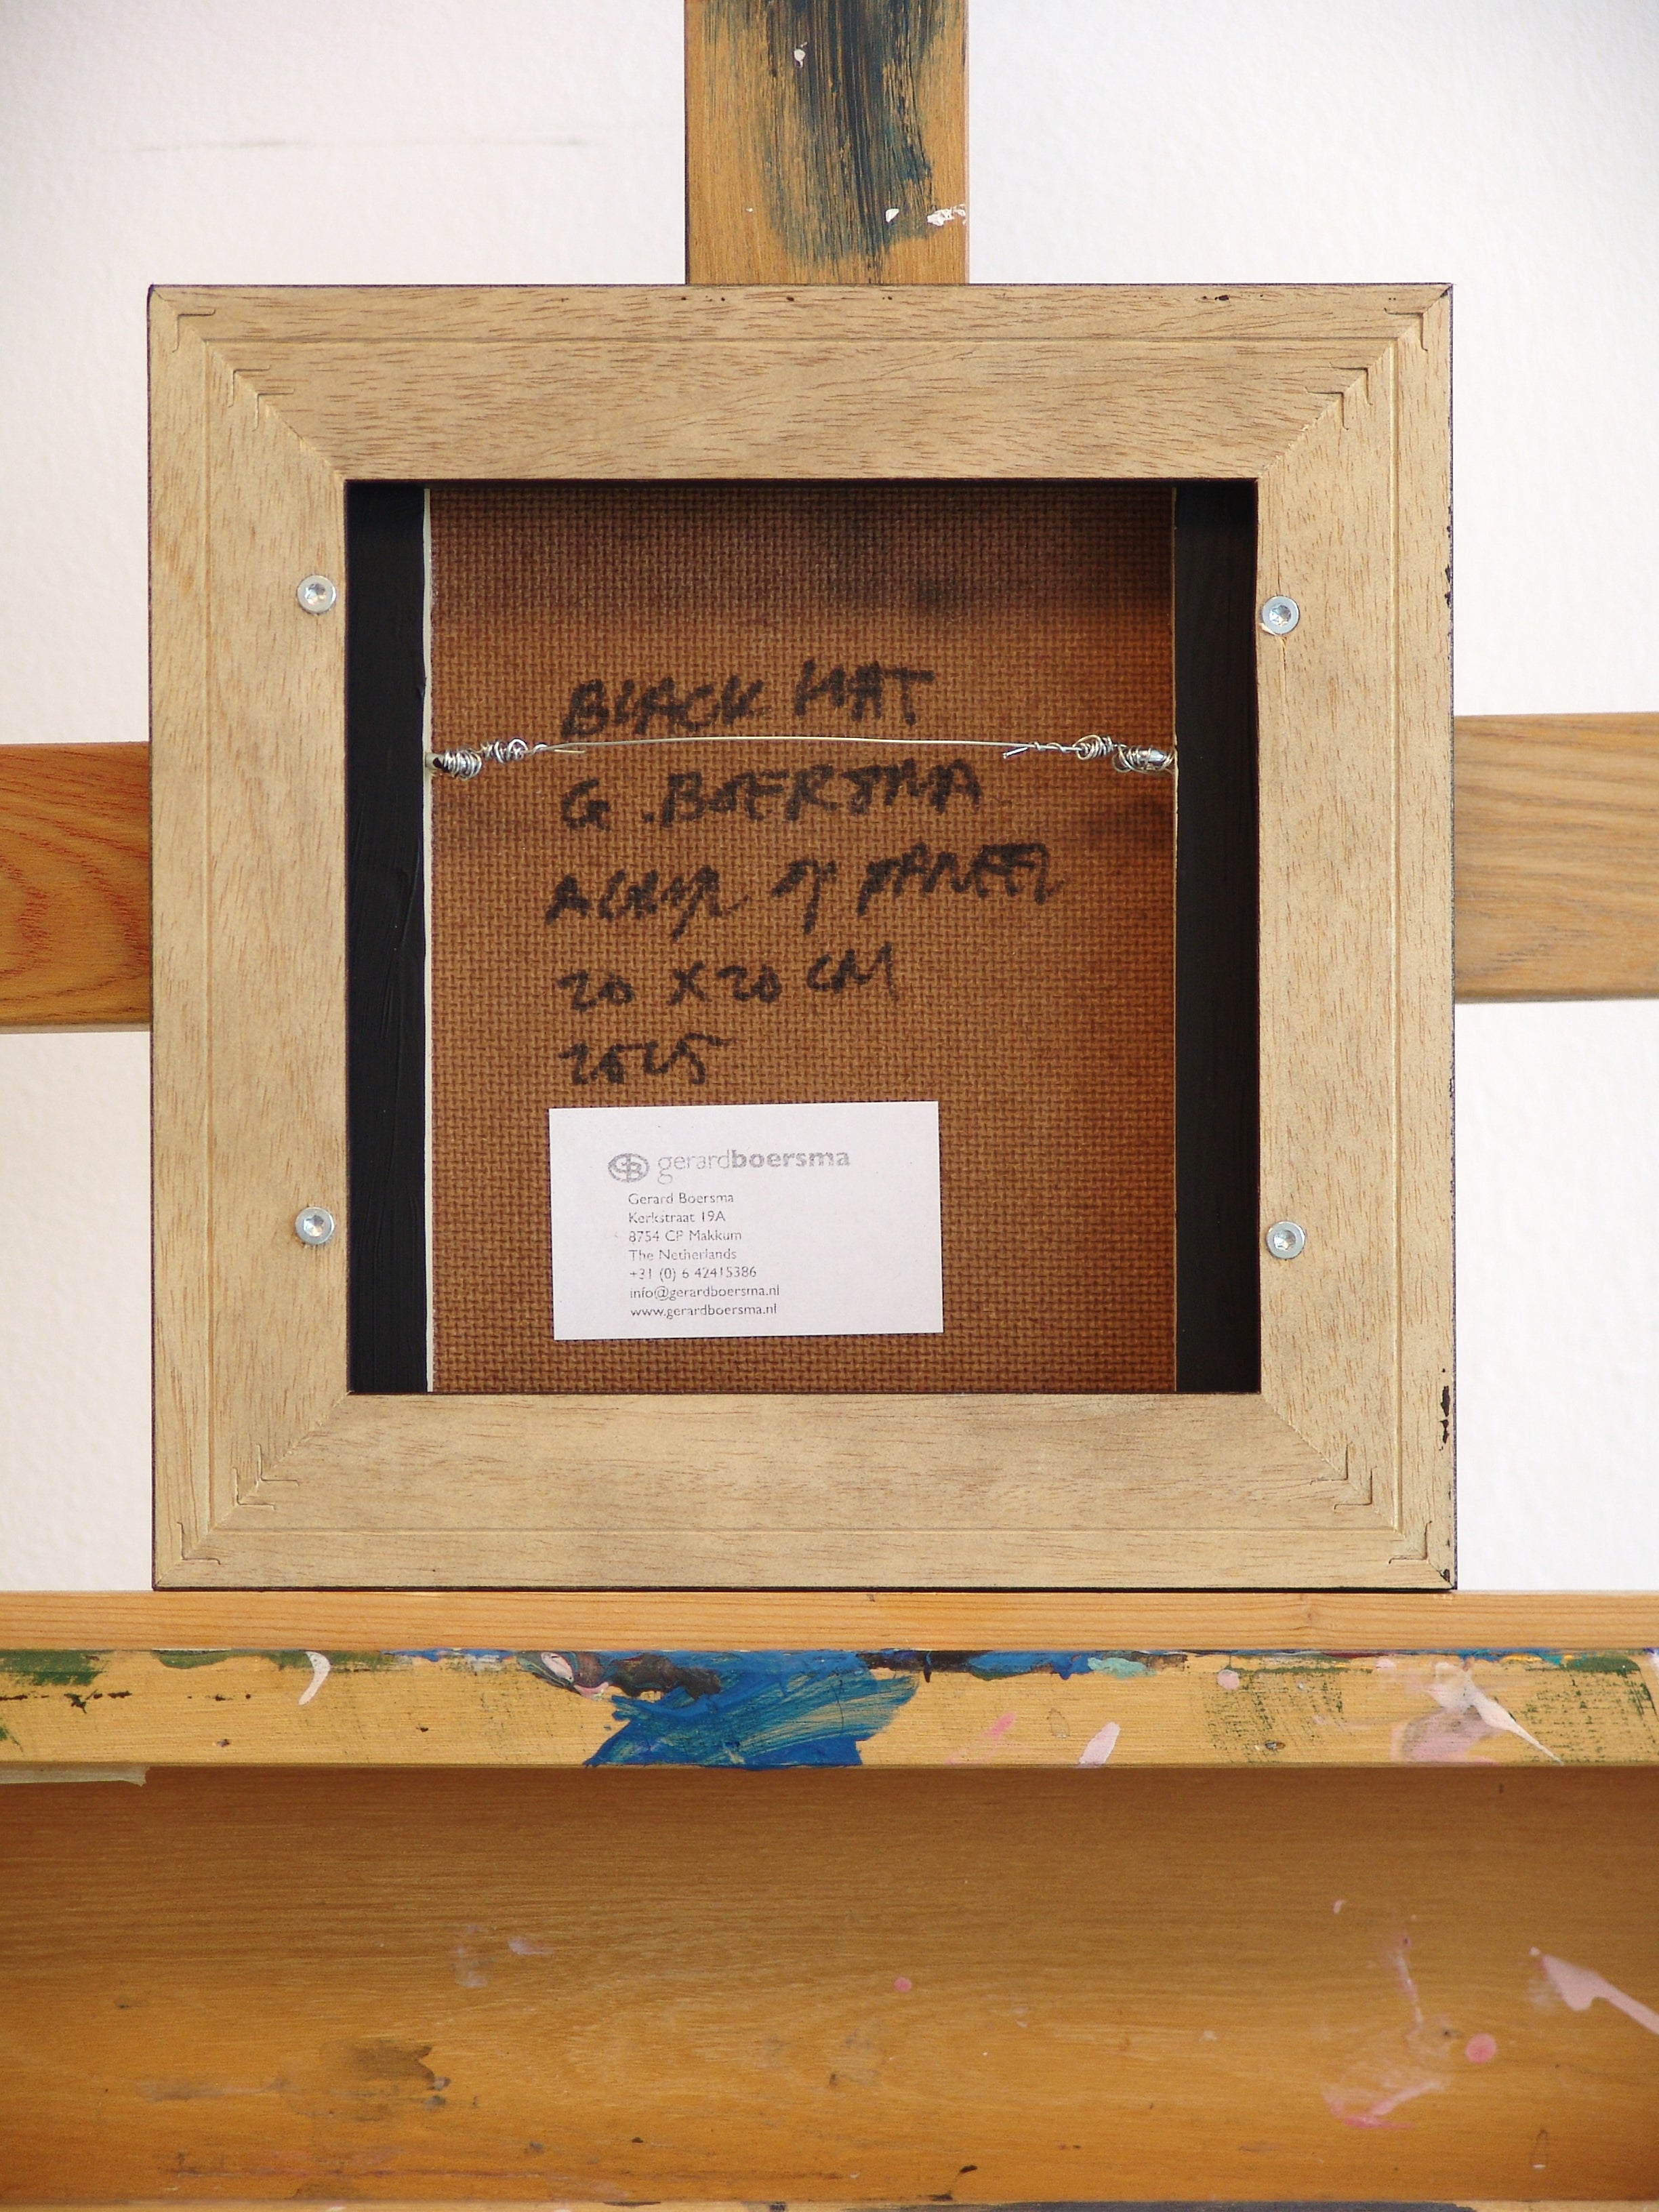 BLACK HAT
G. BOERSMA
ACRYL OP PANEEL
20 X 20 CM
2025
GB gerardboersma
Gerard Boersma
Kerkstraat 19A
8754 CP Makkum
The Netherlands
+31 (0) 6 42415386
info@gerardboersma.nl
www.gerardboersma.nl